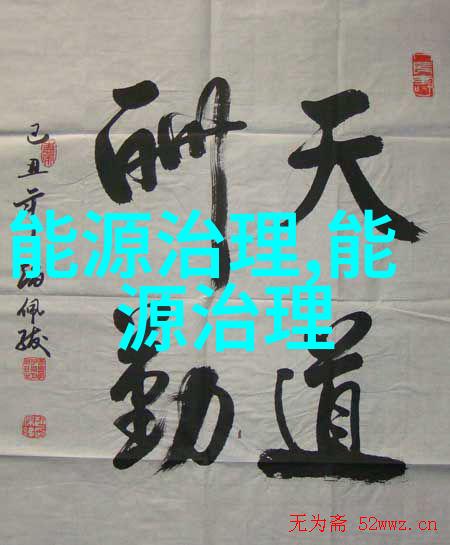 天道
酬勤
己丑佩
能源治理,能
源治理
无为斋 52wwz.cn